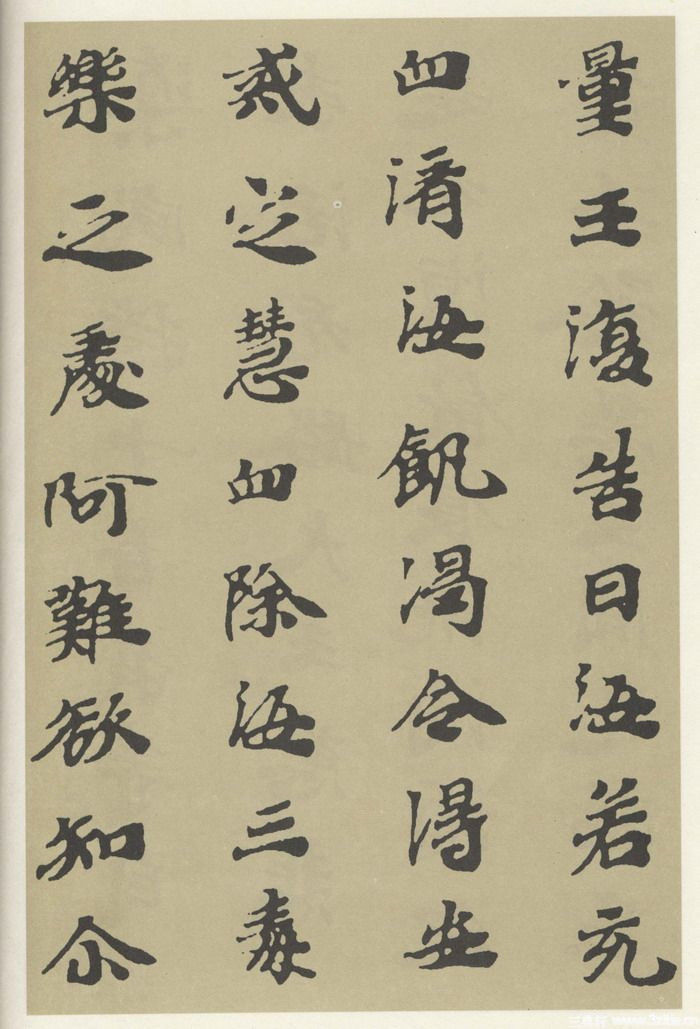 量王復告曰汝若充
血濟汝飢渴令得安
戒定慧血除汝三毒
樂之處阿難欲知尒